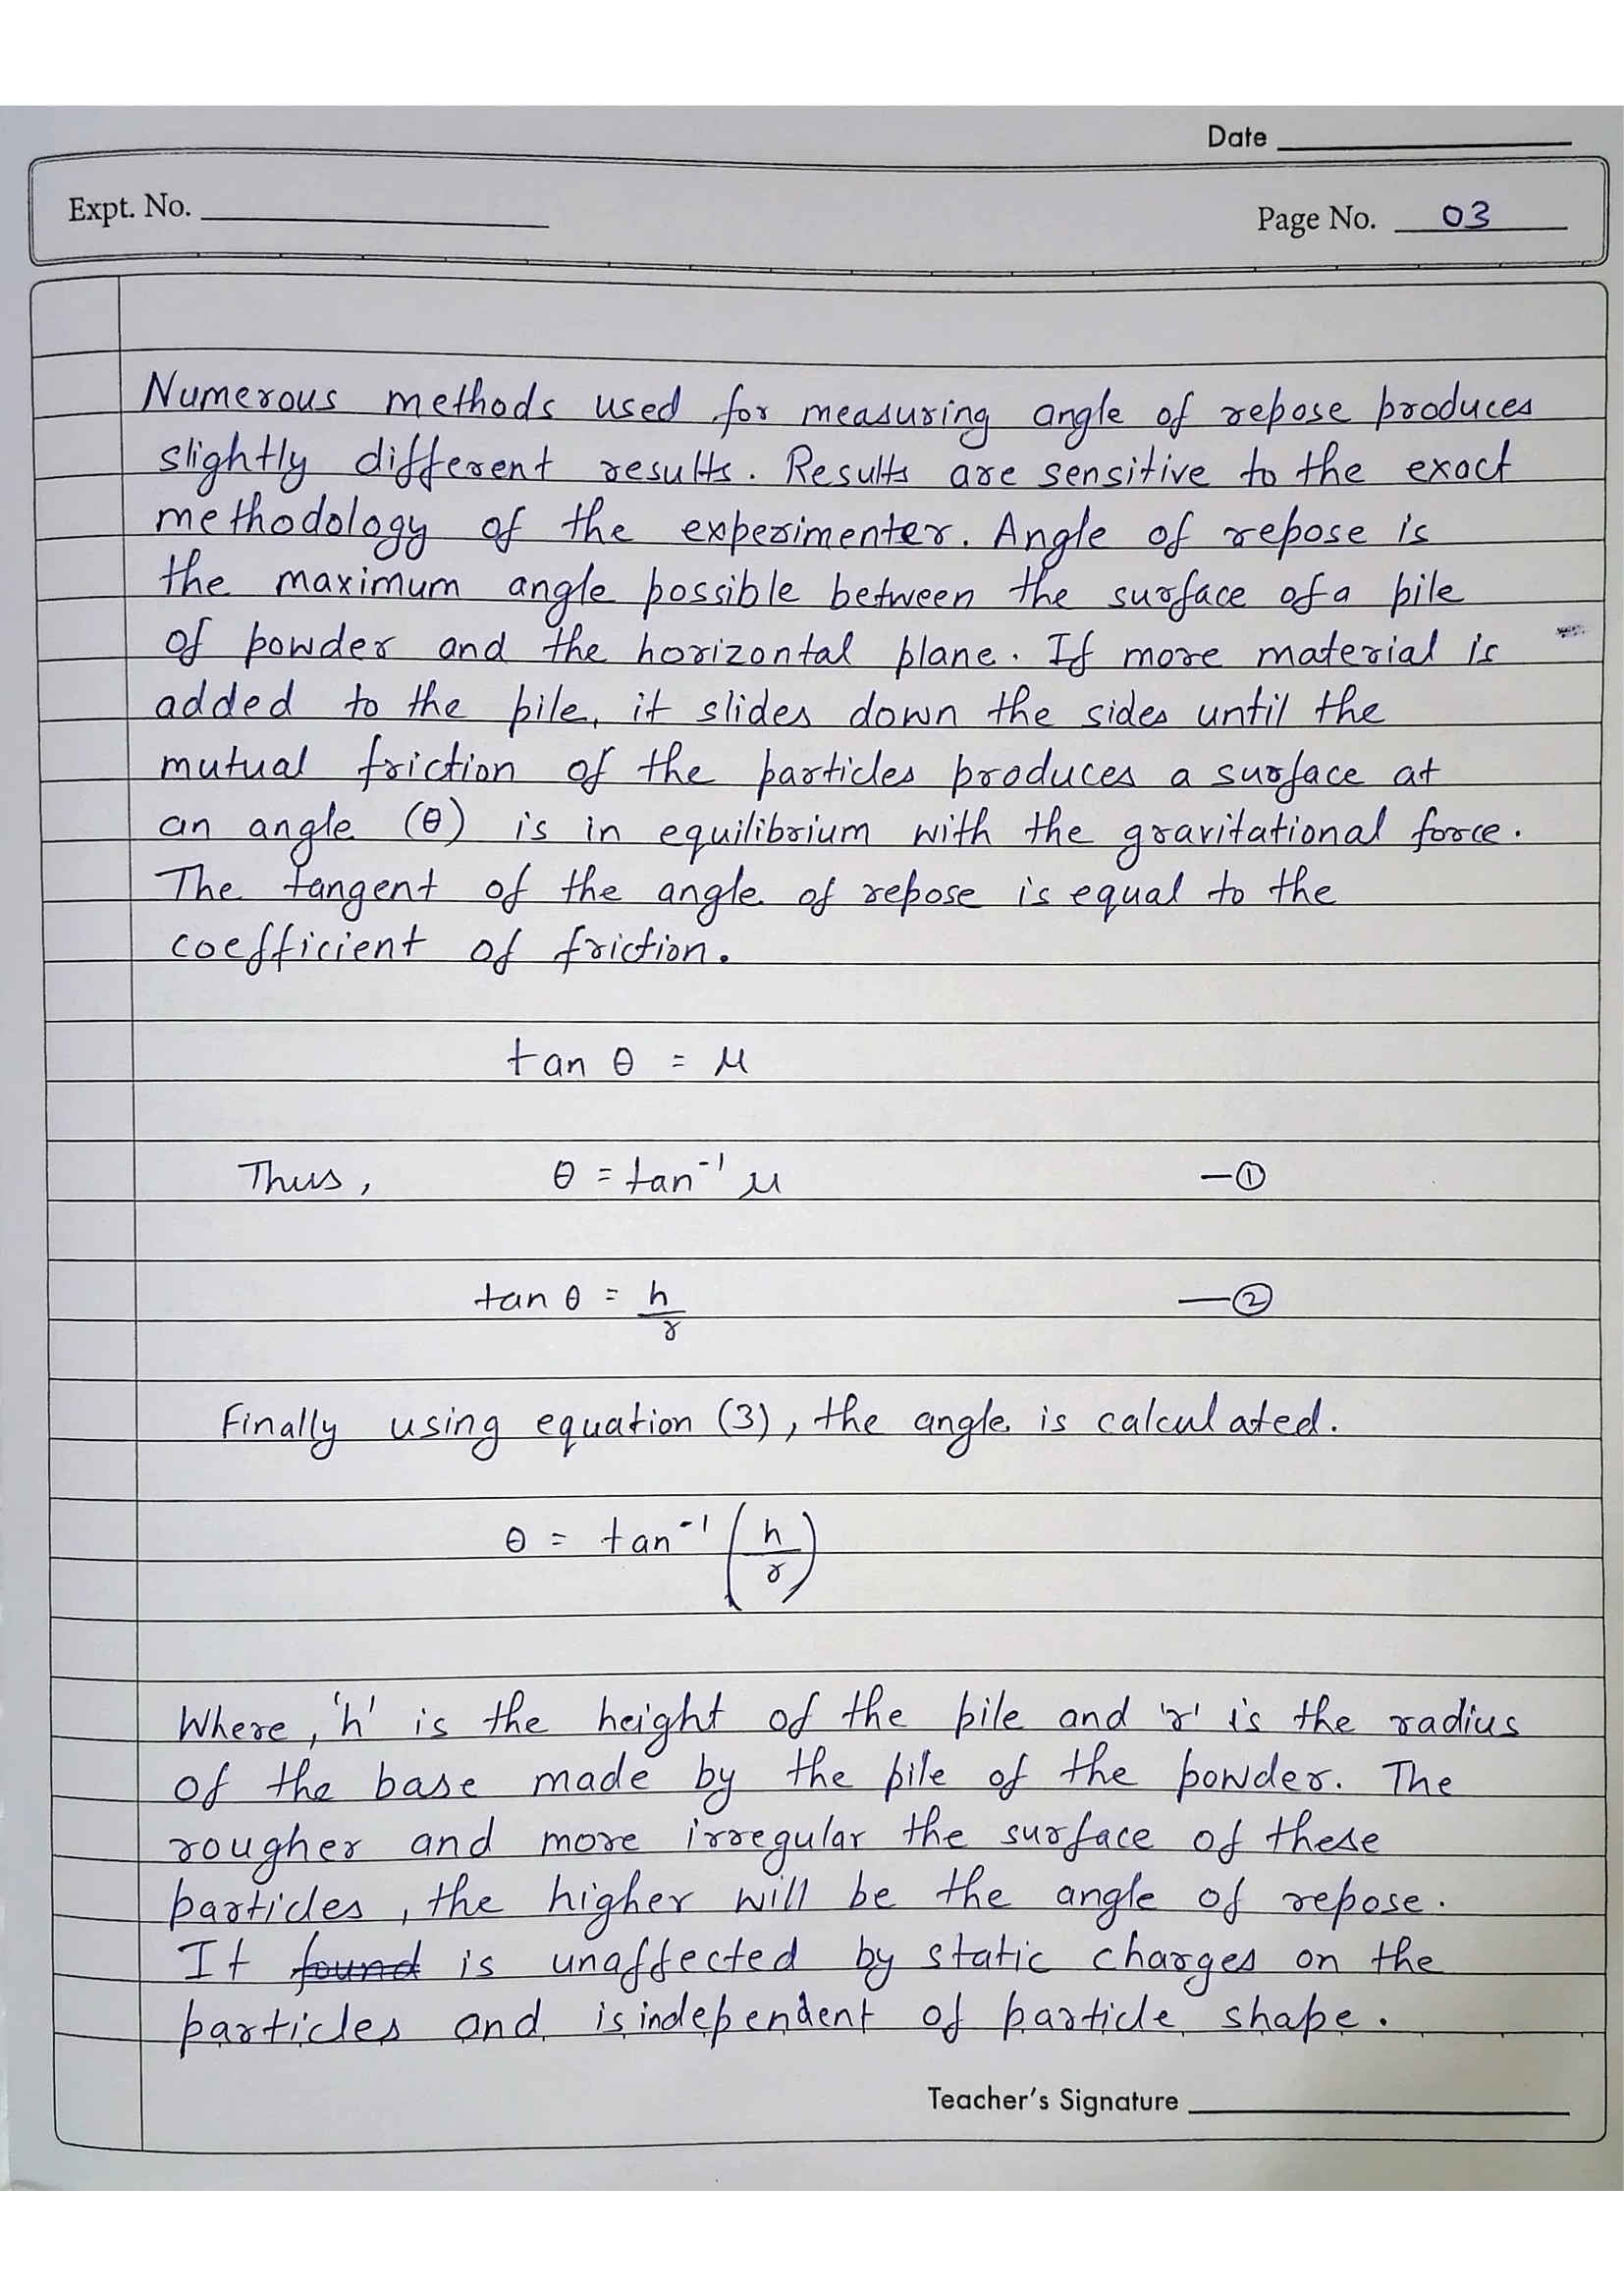 Date
Expt. No.
Page No. 03
Numerous methods used for measuring angle of repose produces
slightly different results. Results are sensitive to the exact
methodology of the experimenter. Angle of repose is
the maximum angle possible between the surface of a pile
of powder and the horizontal plane. If more material is
added to the pile, it slides down the sides until the
mutual friction of the particles produces a surface at
an angle (θ) is in equilibrium with the gravitational force.
The tangent of the angle of repose is equal to the
coefficient of friction.
tan θ = μ
Thus, θ = tan⁻¹ μ —①
tan θ = h/r —②
Finally using equation (3), the angle is calculated.
θ = tan⁻¹ (h/r)
Where, 'h' is the height of the pile and 'r' is the radius
of the base made by the pile of the powder. The
rougher and more irregular the surface of these
particles, the higher will be the angle of repose.
It found is unaffected by static charges on the
particles and is independent of particle shape.
Teacher's Signature